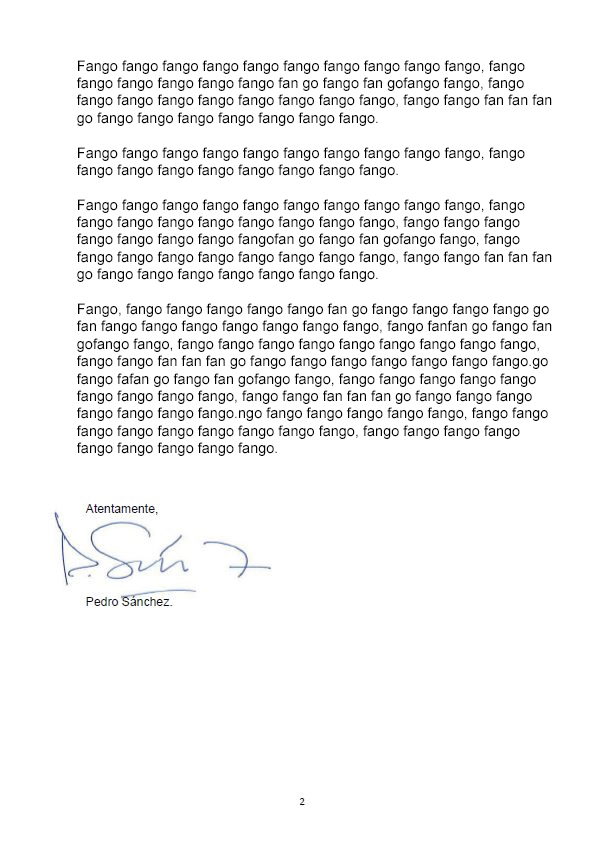 Fango fango fango fango fango fango fango fango fango fango, fango
fango fango fango fango fango fan go fango fan gofango fango, fango
fango fango fango fango fango fango fango fango, fango fango fan fan fan
go fango fango fango fango fango fango fango.
Fango fango fango fango fango fango fango fango fango fango, fango
fango fango fango fango fango fango fango fango.
Fango fango fango fango fango fango fango fango fango fango, fango
fango fango fango fango fango fango fango fango, fango fango fango
fango fango fango fango fangofan go fango fan gofango fango, fango
fango fango fango fango fango fango fango fango, fango fango fan fan fan
go fango fango fango fango fango fango fango.
Fango, fango fango fango fango fango fan go fango fango fango fango go
fan fango fango fango fango fango fango fango, fango fanfan go fango fan
gofango fango, fango fango fango fango fango fango fango fango fango,
fango fango fan fan fan go fango fango fango fango fango fango fango.go
fango fafan go fango fan gofango fango, fango fango fango fango fango
fango fango fango fango, fango fango fan fan fan go fango fango fango
fango fango fango fango.ngo fango fango fango fango fango, fango fango
fango fango fango fango fango fango fango, fango fango fango fango
fango fango fango fango fango.
Atentamente,
Pedro Sánchez.
2